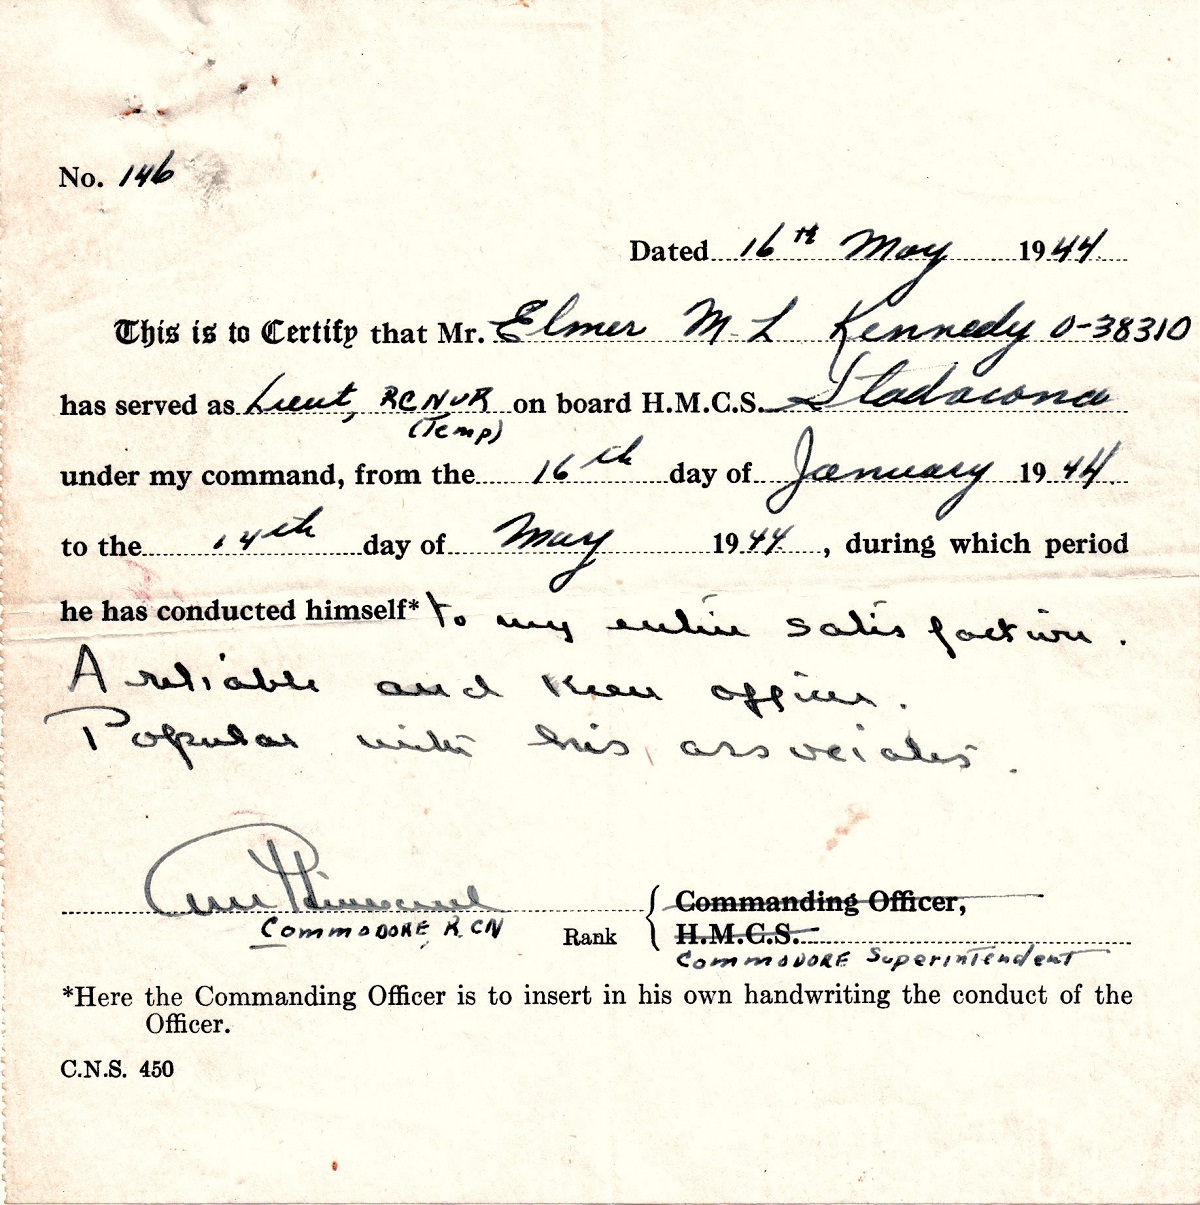 No. 146
Dated 16th May 1944
This is to Certify that Mr. Elmer M. L. Kennedy O-38310
has served as Lieut, RCNVR on board H.M.C.S. Stadacona
(Temp)
under my command, from the 16th day of January 1944
to the 14th day of May 1944, during which period
he has conducted himself* to my entire satisfaction.
A reliable and keen officer.
Popular with his associates.
Commanding Officer,
COMMODORE, R.CN Rank H.M.C.S.
COMMODORE Superintendent
*Here the Commanding Officer is to insert in his own handwriting the conduct of the
Officer.
C.N.S. 450